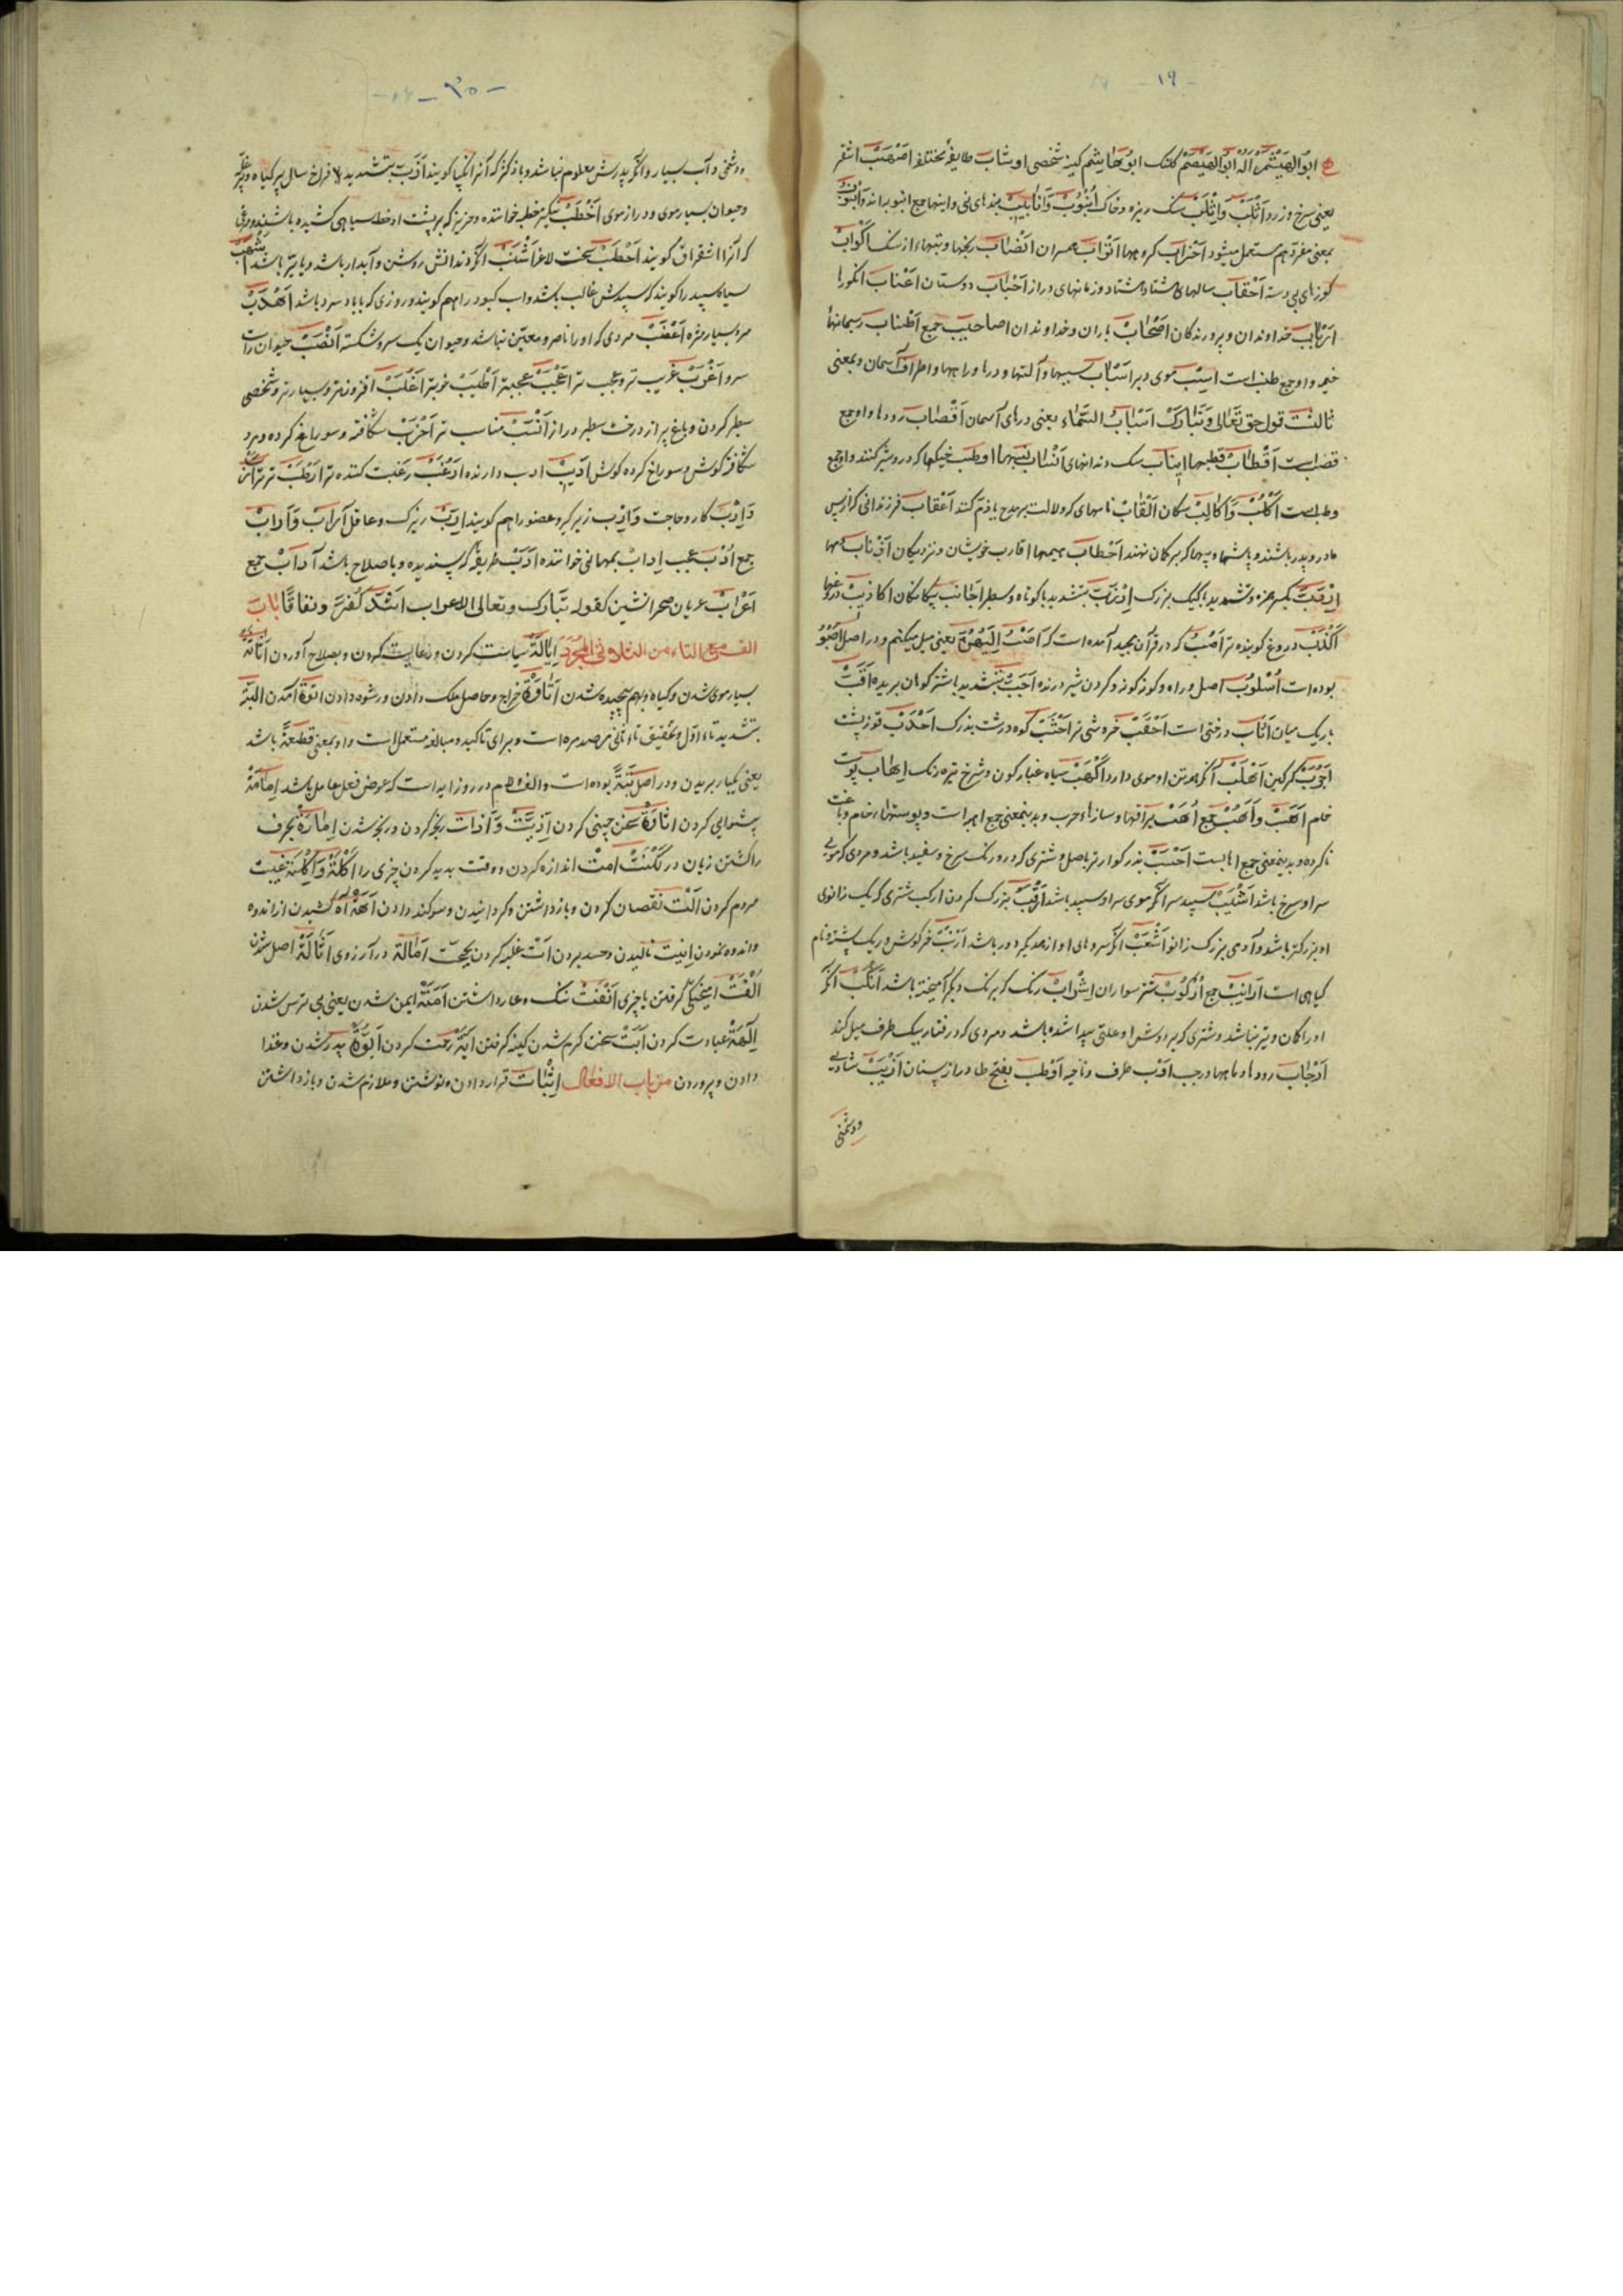 - ١٩ -
ابو الهیثم اله ابو الهیصم کلنک ابو هاشم کینز شخصی اوشاب طایفهٔ مختلفه اصهب اشقر
یعنی سرخ و زرد اثلب واثلب سنک ریزه وخاک انبوب وانابیب بندهای نی واینها جمع انبوبه اند وانبوب
بمعنی مفرد هم مستعمل میشود احزاب کروهها اتراب همسران انصاب رنجها وبتها از سنک اکواب
کوزهای بی دسته احقاب سالهای هشتاد هشتاد وزمانهای دراز احباب دوستان اعناب انکورها
ارباب خداوندان وپرورندکان اصحاب یاران وخداوندان اصاحیب جمع اطناب ریسمانهای
خیمه واو جمع طنب است اسبب موی دبر اسباب سببها وآلتها ودرها وراهها واطراف آسمان وبمعنی
ثالثست قول حق تعالی وتبارک اسباب السماء یعنی درهای آسمان اقصاب رودها واو جمع
قصب است اقطاب قطبها انیاب سک دندانهای انساب نسبها اوطب خیکها که درو شیر کنند واو جمع
وطب است اکلب واکالب سکان القاب نامهای که دلالت بر مدح یا ذم کند اعقاب فرزندانی که از پس
مادر وپدر باشند وپاشنها وپیها که بر کمان نهند احطاب هیمها اقارب خویشان ونزدیکان اذناب دمها
بکسر همزه وتشدید با کیک بزرک ارزب بتشدید با کوتاه وسطبر اجانب بیکانکان اکاذیب دروغها
اکذب دروغ کوینده تر اصب که در قرآن مجید آمده است که اصب الیهن یعنی میل میکنم ودر اصل اصبو
بوده است اسلوب اصل وراه وکونه کونه وکردن شیر درنده اجب بتشدید با شتر کوهان بریده اقب
باریک میان اثاب درختی است احقب خر وشی نر اخشب کوه درشت بزرک احدب قوز پشت
اجرب کرکین اهلب آنکه همه تن او موی دارد اکهب سیاه غبار کون وسرخ تیره رنک اهاب پوست
خام اهب واهب جمع اهب یراقها وسازهاء حرب وبدینمعنی جمع اهبه است وپوستهاء خام دباغت
ناکرده وبدینمعنی جمع اهابست احسب بزرکوارتر باصل وشتری که درو رنک سرخ وسفید باشد ومردی که موی
سر او سرخ باشد اشیب سپید سر آنکه موی سر او سپید باشد ارقب بزرک کردن ارکب شتری که یک زانوی
او بزرکتر باشد وآدمی بزرک زانو اشعب آنکه سروهای او از همدیکر دور باشد ارنب خرکوش وریک پشته ونام
کیاهی است ارانیب جمع ارکوب شتر سواران اشراب رنک که بر نک دیکر آمیخته باشد انکب آنکه
او را کمان وتیر نباشد وشتری که بر دوش او علتی پیدا شده باشد ومردی که در رفتار بیک طرف میل کند
ارجاب رودها وماهها رجب اوب طرف وناحیه اوطب بفتح طا دراز پستان اذیب شادی
ودشمنی
- ٢٠ -
ودشمنی وآب بسیار وآنکه پدرش معلوم نباشد وباد کژ که آنرا نکبا کویند ازب بتشدید با فراخ سال پر کیاه وپر غله
وحیوان بسیار موی ودراز موی اخطب نیکتر خطبه خوانتده وخر نیز که بر پشت او خط سیاهی کشیده باشند ومرغی
که آنرا اشقراق کویند احطب سخت لاغر اشنب آنکه دندانش روشن وآبدار باشد ویا تیز باشد اشهب
سیاه سپید را کویند که سپیدش غالب باشد واسب کبود را هم کویند وروزی که با باد سرد باشد اهدب
مرد بسیار مژه اعضب مردی که او را ناصر ومعین نباشد وحیوان یک سرو شکسته انصب حیوان راست
سرو اغرب غریب تر وعجب تر اعجب عجیبتر اطیب خوبتر اغلب افزونتر وبسیار تر وشخصی
سطبر کردن وباغ پر از درخت سطبر دراز انسب مناسب تر اخرب شکافته وسوراغ کرده ومرد
شکافته کوش وسوراخ کرده کوش ادیب ادب دارنده ارغب رغبت کننده تر ارطب تر تر ارب
وارب کار وحاجت وارب زیرک وعضو را هم کویند اریب زیرک وعاقل آراب وآراب
جمع ادب عجب اداب بمهمانی خوانتده ادب طریقه که پسندیده وباصلاح باشد آداب جمع
اعراب عربان صحرا نشین کقوله تبارک وتعالی الاعراب اشد کفرا ونفاقا باب
الالف مع التاء من الثلاثی المجرد ایالة سیاست کردن ورعایت کردن وبصلاح آوردن اثاثة
بسیار موی شدن وکیاه وبهم پیچیده شدن اتاوة خراج وحاصل ملک دادن ورشوه دادن اتوة آمدن البتة
بتشدید تاء اول وتخفیف تاء ثانی مصدر مره است وبرای تاکید ومبالغه مستعمل است واو بمعنی قطعة باشد
یعنی یکبار بریدن ودر اصل بتة بوده است والف ولام درو زایده است که عوض فعل عامل باشد امامة
پیشوایی کردن اثاوة سخن چینی کردن اذیت واذات رنجه کردن ورنجه شدن حرف
را کشتن زبان در لکنت امت اندازه کردن ووقت بدید کردن چیزی را اکلة واکلة غیبت
مردم کردن الت نقصان کردن وبازداشتن وکردانیدن وسوکند دادن اهة آه کشیدن از اندوه
واندوه نمودن انیت نالیدن وحسد بردن ات غلبه کردن بحجت امالة در آرزوی اثالة اصل شدن
الفت آمیختکی کرفتن با چیزی انفت ننک وعار داشتن امنة ایمن شدن یعنی بی ترس شدن
الهة عبادت کردن ابت سخت کرم شدن کینه کرفتن ایة رحمت کردن ابوة پدر شدن وغذا
دادن وپروردن من باب الافعال اثبات قرار دادن ونوشتن وملازم شدن وبازداشتن